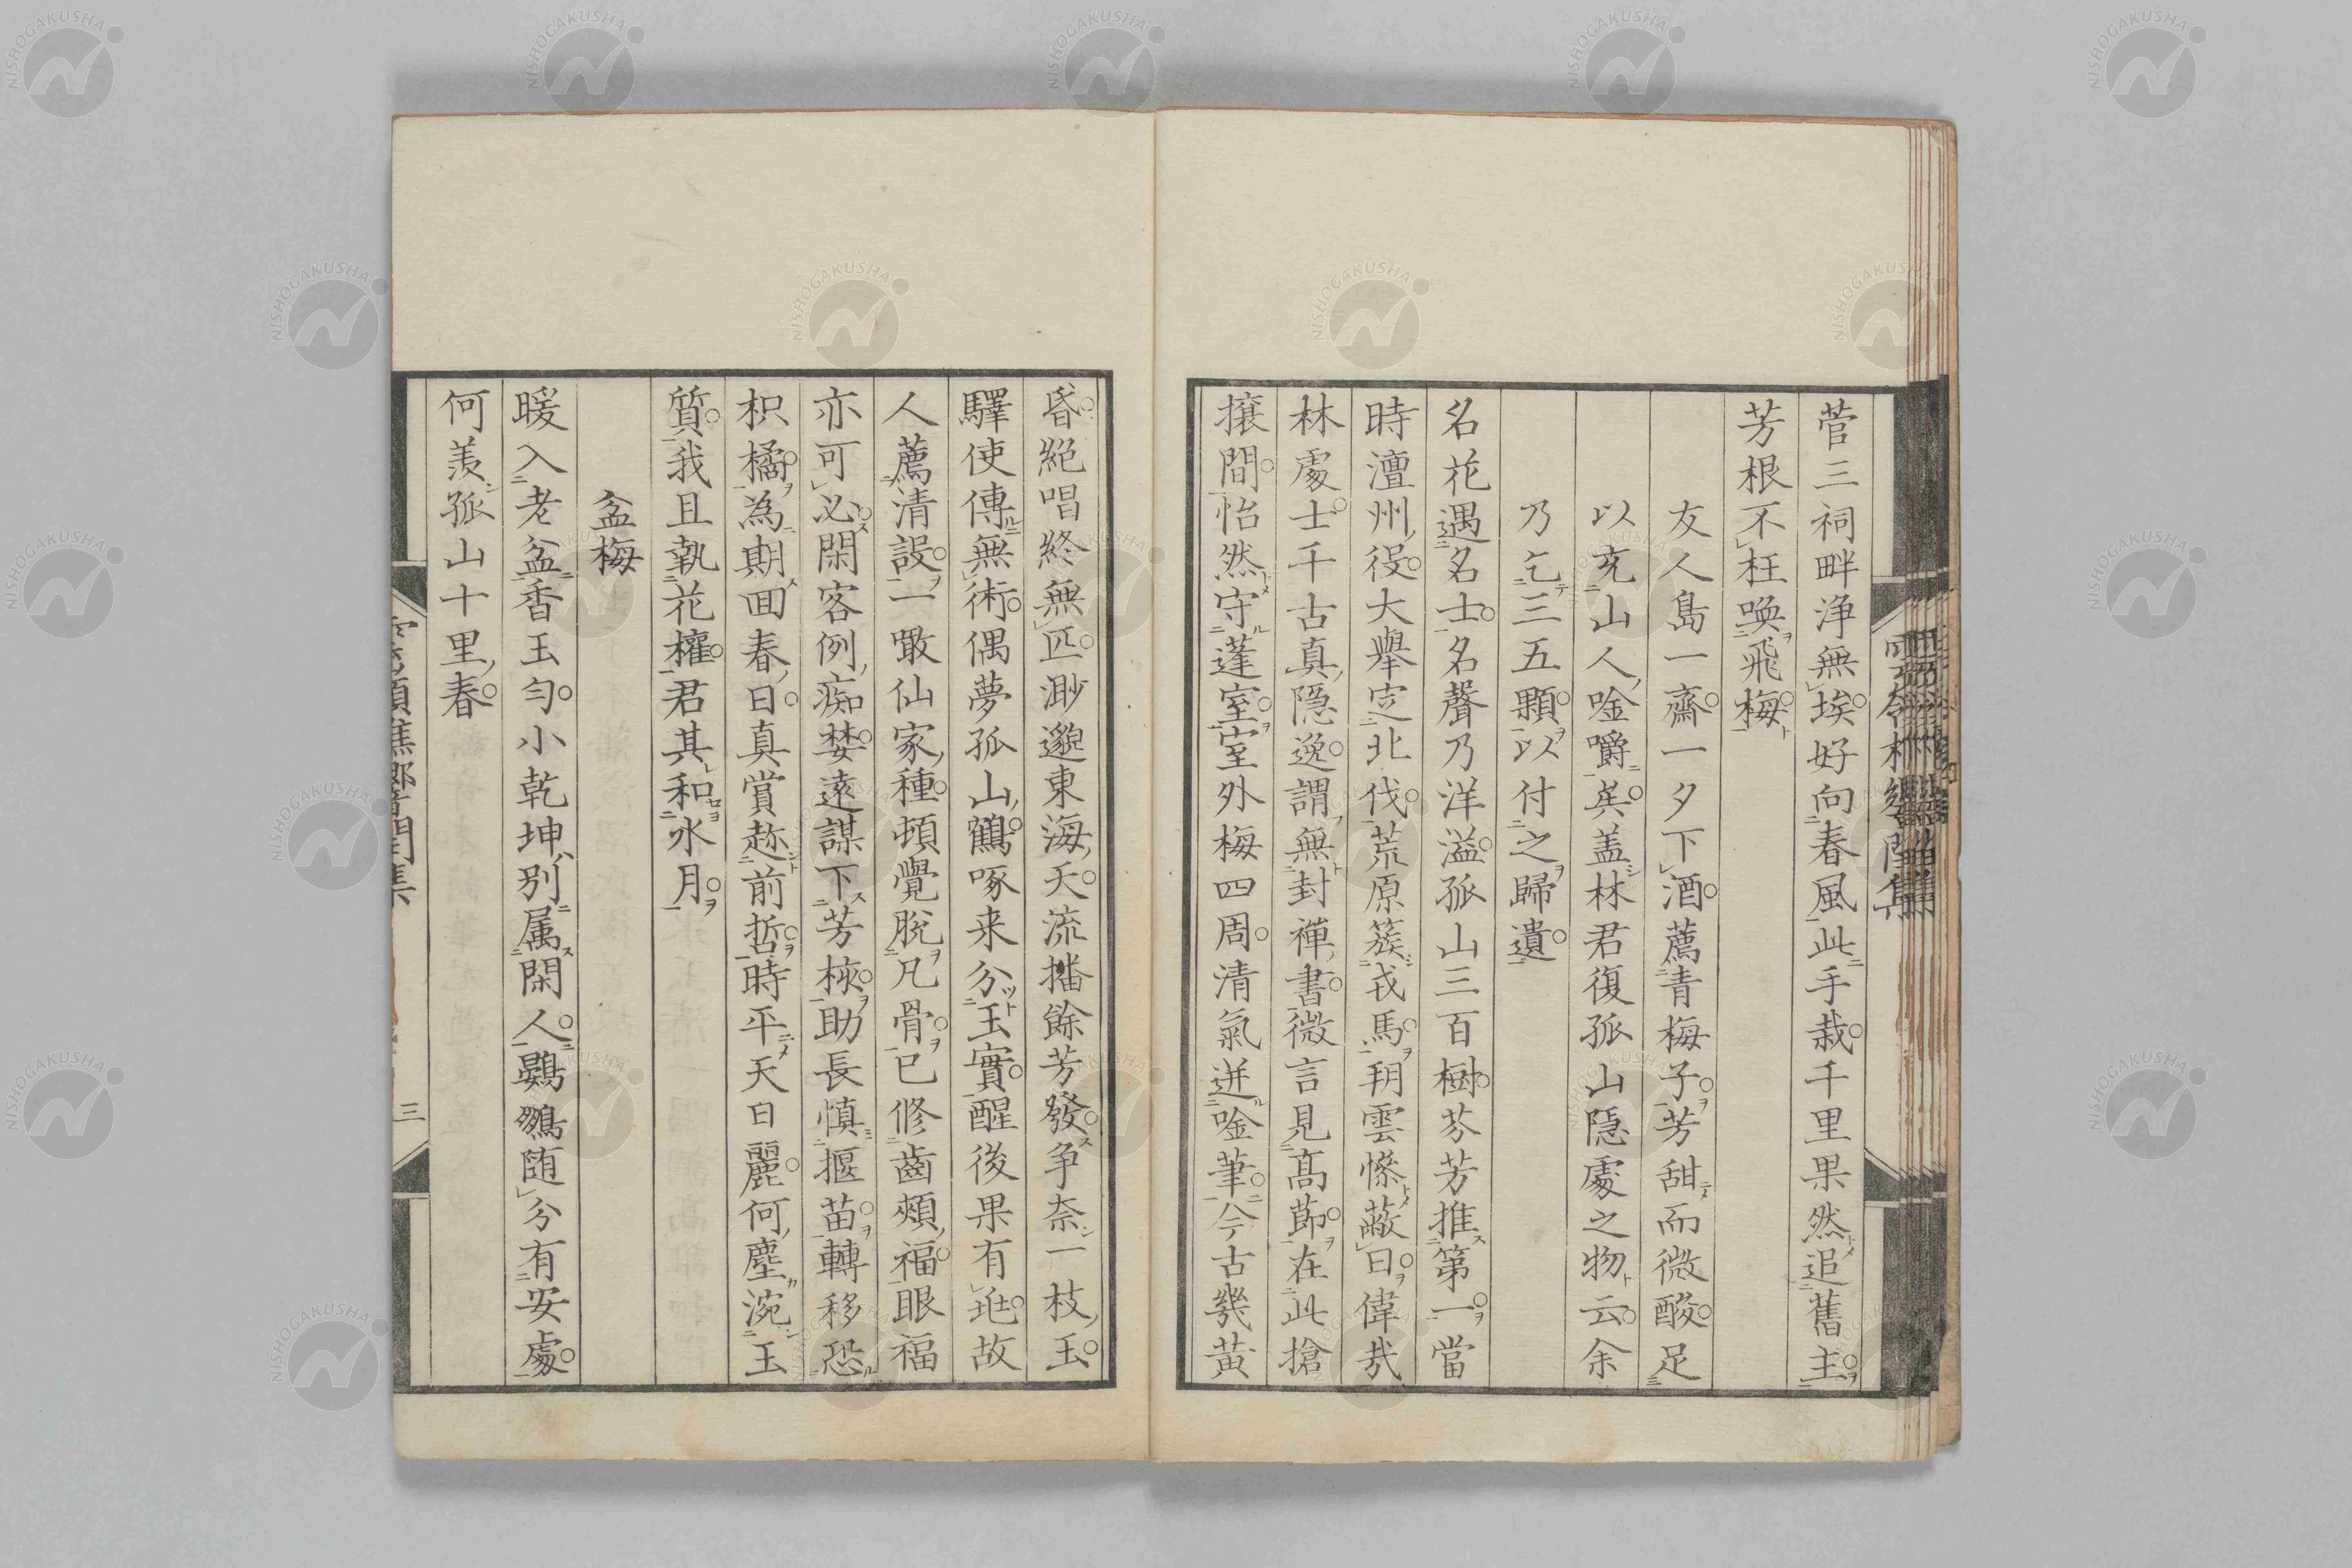 菅三祠畔浄無埃好向春風此手栽千里果然追舊主
芳根不枉喚飛梅
友人島一齋一夕下酒薦青梅子芳甜而微酸足
以充山人唫嚼矣盖林君復孤山隠處之物云余
乃乞三五顆以付之歸遺
名花遇名士名聲乃洋溢孤山三百樹芬芳推第一當
時澶州役大擧定北伐荒原簇戎馬朔雲慘蔽日偉哉
林處士千古真隠逸謂無封禪書微言見髙莭在此搶
攘間怡然守蓬室室外梅四周清氣迸唫筆今古幾黄
昏絕唱終無匹渺邈東海天流播餘芳發争奈一枝玉
驛使傳無術偶夢孤山鶴啄来分玉實醒後果有玭故
人薦清設一噉仙家種頓覺脫凡骨已修齒頰福眼福
亦可必閑客例痴婪遠謀下芳核助長慎揠苗轉移恐
枳橘為期回春日真賞趂前哲時平天日麗何塵涴玉
質我且執花權君其和水月
盆梅
暖入老盆香玉匀小乾坤別属閑人鷃鷚随分有安處
何羨孤山十里春
三
NISHOGAKUSHA